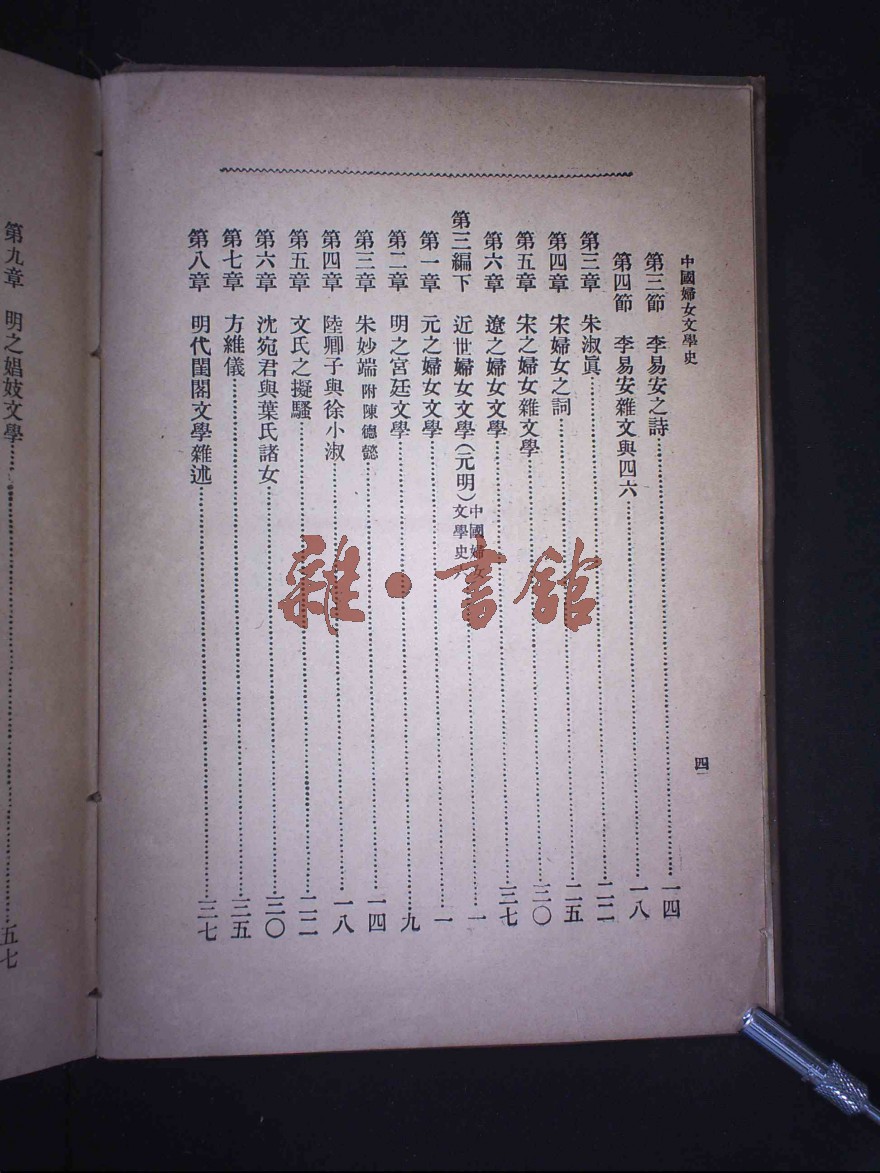 中國婦女文學史
四
第三節 李易安之詩 一四
第四節 李易安雜文與四六 一八
第三章 朱淑眞 二二
第四章 宋婦女之詞 二五
第五章 宋之婦女雜文學 三〇
第六章 遼之婦女文學 三七
第三編下 近世婦女文學(元明) 中國婦女文學史 一
第一章 元之婦女文學 一
第二章 明之宮廷文學 九
第三章 朱妙端 附陳德懿 一四
第四章 陸卿子與徐小淑 一八
第五章 文氏之擬騷 二二
第六章 沈宛君與葉氏諸女 三〇
第七章 方維儀 三五
第八章 明代閨閣文學雜述 三七
第九章 明之娼妓文學 五七
雜·書館